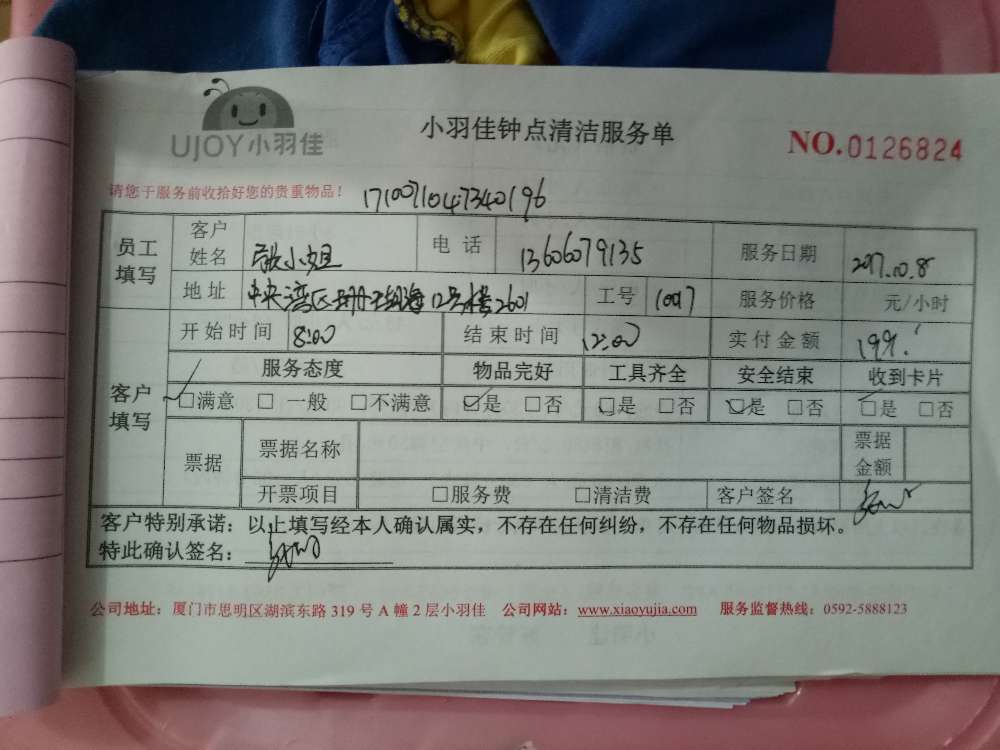 UJOY小羽佳
小羽佳钟点清洁服务单
NO.0126824
请您于服务前收拾好您的贵重物品！
1710071047340196
员工填写 客户姓名 小姐 电话 13606079135 服务日期 2017.10.8
地址 中央湾区 12号楼2601 工号 服务价格 元/小时
客户填写 开始时间 8:00 结束时间 12:00 实付金额 199.
服务态度 物品完好 工具齐全 安全结束 收到卡片
□满意 □一般 □不满意 ☑是 □否 ☑是 □否 ☑是 □否 ☑是 □否
票据 票据名称 票据金额
开票项目 □服务费 □清洁费 客户签名
客户特别承诺：以上填写经本人确认属实，不存在任何纠纷，不存在任何物品损坏。
特此确认签名：
公司地址：厦门市思明区湖滨东路 319 号 A 幢 2 层小羽佳 公司网站：www.xiaoyujia.com 服务监督热线：0592-5888123